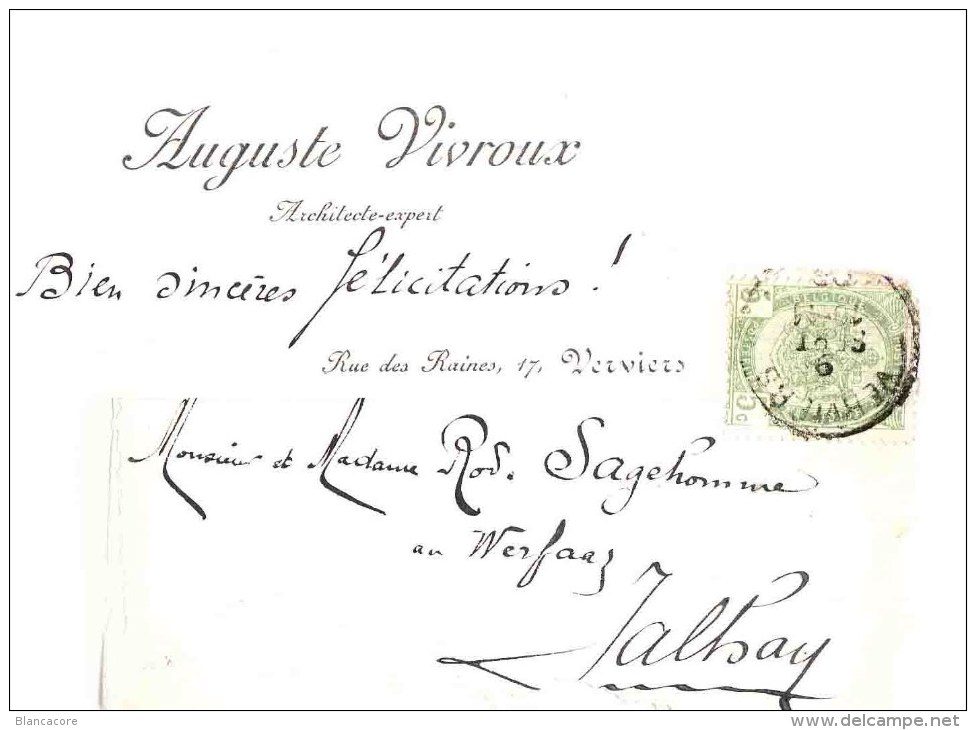 Auguste Vivroux
Architecte-expert
Bien sincères félicitations !
Rue des Raines, 17, Verviers
BELGIQUE
18-S
6
VERVIERS
Monsieur et Madame Rod. Sagehomme
au Werfaaz
Jalhay
Blancacore
delcampe.net